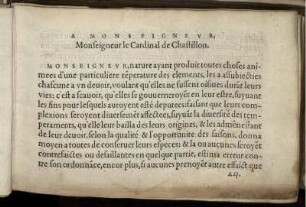 A MONSEIGNEVR,
Monseigneur le Cardinal de Chastillon.
MONSEIGNEVR, nature ayant produit toutes choses ani-
mees d'une particuliere tēperature des elements, les a assubiecties
chascune a vn deuoir, voulant qu'elles ne fussent oisiues durāt leurs
vies: c'est a scauoir, qu'elles se gouuernroyēt en leur estre, suyuant
les fins pour lesquels auroyent esté deputees: faisant que leurs com-
plexions seroyent diuersemēt affectees, suyuāt la diuersité des tem-
peraments, qu'elle leur bailla des leurs origines, & les admōnestant
de leur deuoir, selon la qualité & l'opportunité des saisons, donna
moyen a toutes de conseruer leurs especes: & la ou aucunes seroyēt
contrefaictes ou defaillantes en quelque partie, estima erreur con-
tre son ordonnāce, encor plus, si aucunes prenoyēt autre effaict que